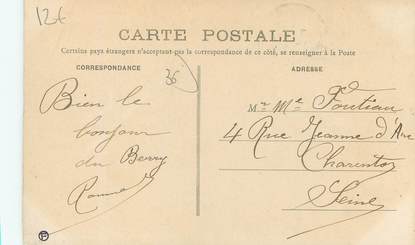 12€
CARTE POSTALE
Certains pays étrangers n'acceptant pas la correspondance de ce côté, se renseigner à la Poste
CORRESPONDANCE
ADRESSE
36
Bien le
bonjour
du Berry
Mr Me
4 Rue Jeanne d'Arc
Charenton
Seine